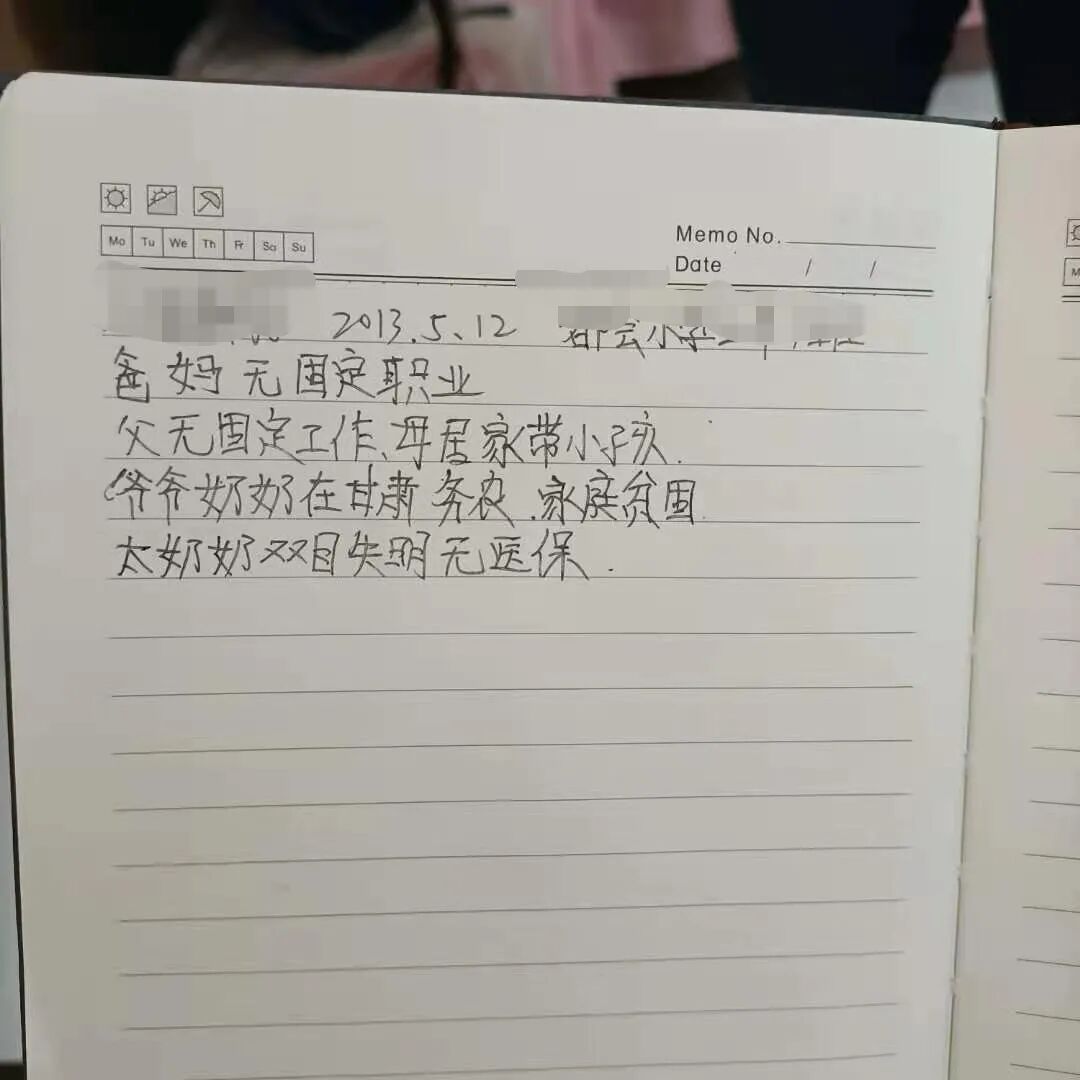 Mo Tu We Th Fr Sa Su
Memo No.
Date / /
2013.5.12 都会小学
爸妈无固定职业
父无固定工作、母居家带小孩.
爷爷奶奶在甘肃务农.家庭贫困.
太奶奶双目失明无医保.